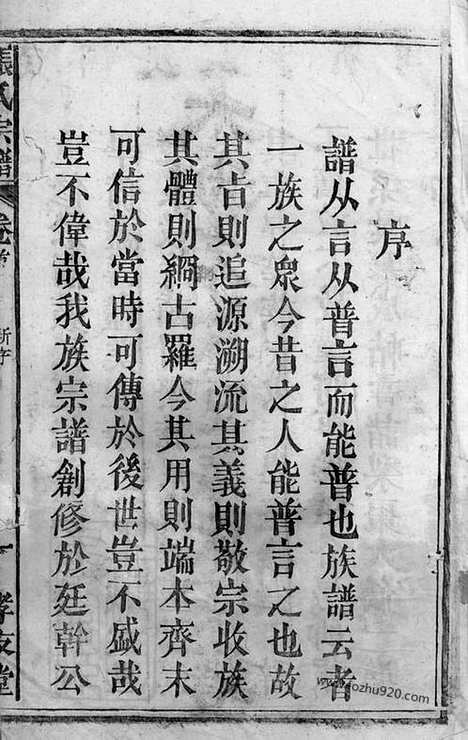 序
譜从言从普言而能普也族譜云者
一族之眾今昔之人能普言之也故
其㫖則追源溯流其義則敬宗收族
其體則綱古羅今其用則端本齊末
可信於當時可傳於後世豈不盛哉
豈不偉哉我族宗譜創修於廷幹公
張氏宗譜 卷首 新序 一 孝友堂
www.fozhu920.com